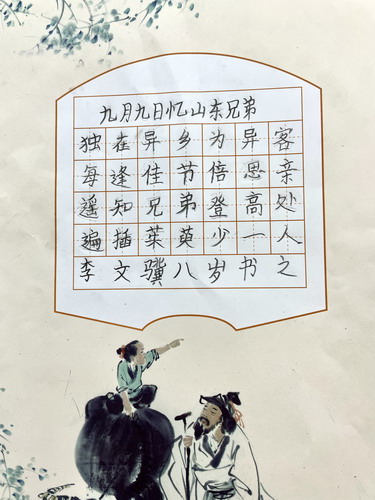 九月九日忆山东兄弟
独在异乡为异客
每逢佳节倍思亲
遥知兄弟登高处
遍插茱萸少一人
李文骥八岁书之